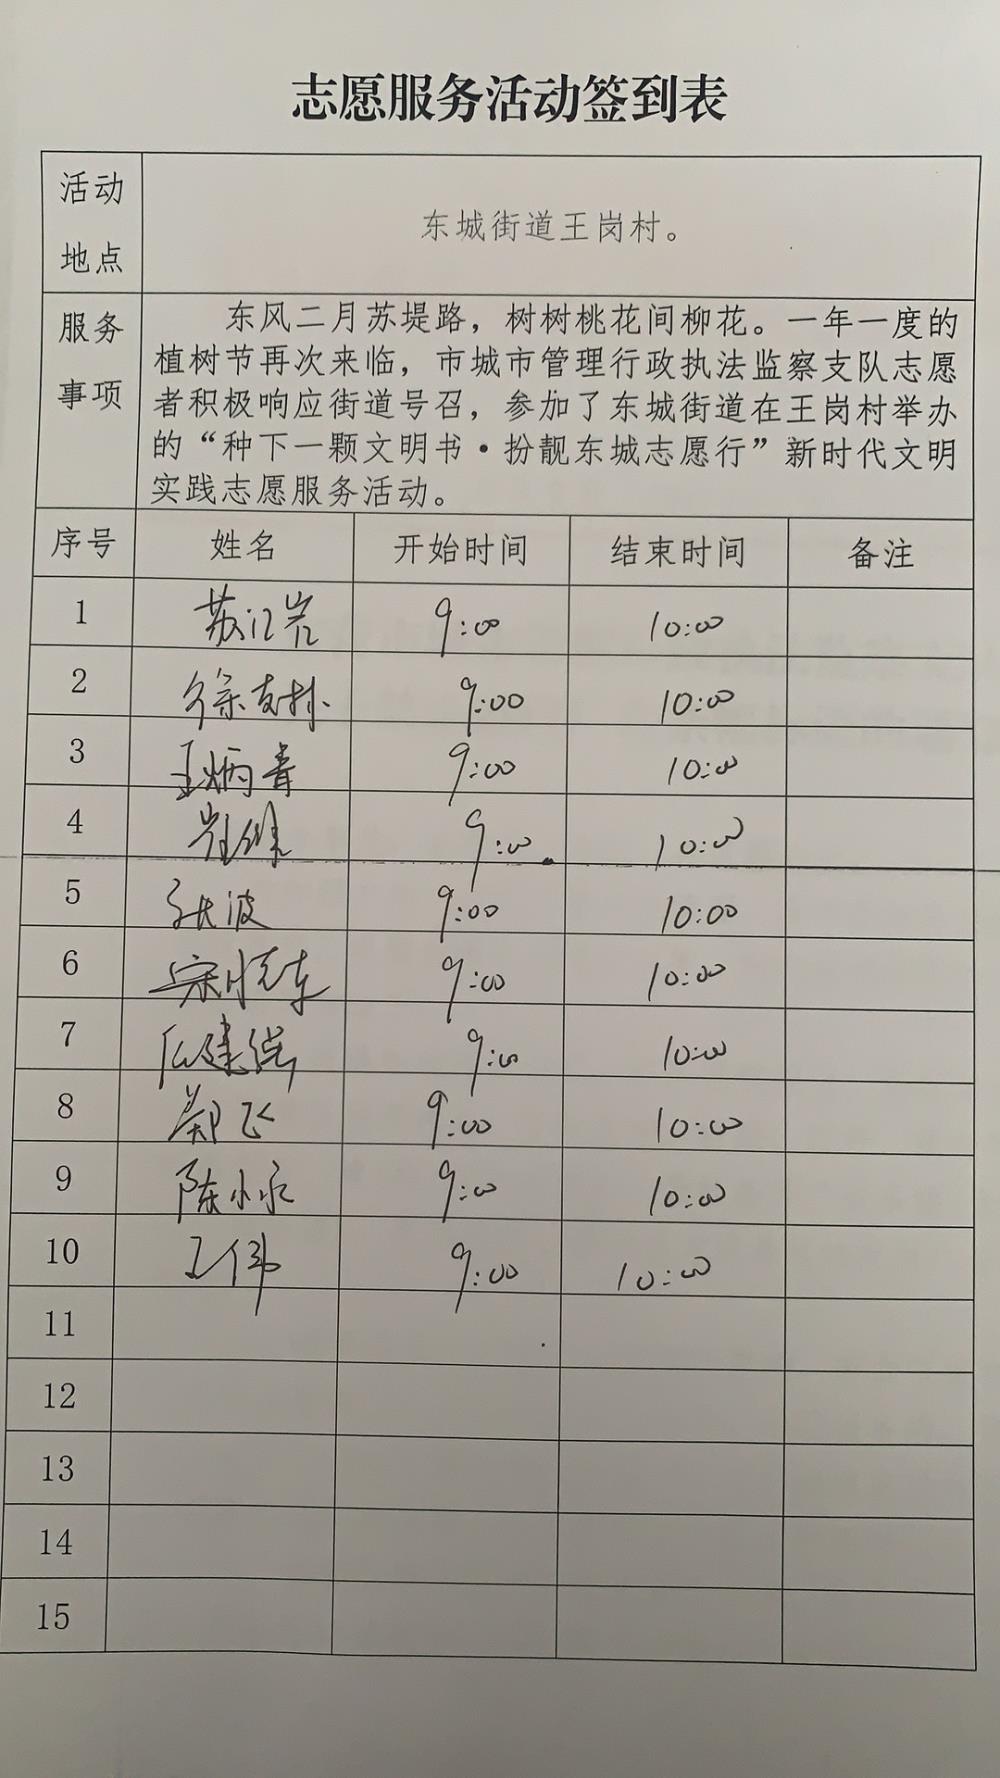 志愿服务活动签到表
活动地点
东城街道王岗村。
服务事项
东风二月苏堤路，树树桃花间柳花。一年一度的
植树节再次来临，市城市管理行政执法监察支队志愿
者积极响应街道号召，参加了东城街道在王岗村举办
的“种下一颗文明书·扮靓东城志愿行”新时代文明
实践志愿服务活动。
序号 姓名 开始时间 结束时间 备注
1 苏江岩 9:00 10:00
2 徐支林 9:00 10:00
3 王炳青 9:00 10:00
4 9:00 10:00
5 张波 9:00 10:00
6 宋晓东 9:00 10:00
7 9:00 10:00
8 郑飞 9:00 10:00
9 陈小永 9:00 10:00
10 王伟 9:00 10:00
11
12
13
14
15